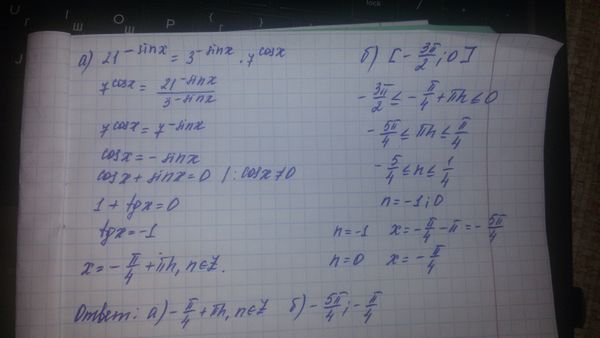 а) 21^{-sinx} = 3^{-sinx} · 7^{cosx}
7^{cosx} = \frac{21^{-sinx}}{3^{-sinx}}
7^{cosx} = 7^{-sinx}
cosx = -sinx
cosx + sinx = 0 / : cosx ≠ 0
1 + tgx = 0
tgx = -1
x = -\frac{π}{4} + πn, n ∈ Z.
б) [-\frac{3π}{2}; 0]
-\frac{3π}{2} ≤ -\frac{π}{4} + πn ≤ 0
-\frac{5π}{4} ≤ πn ≤ \frac{π}{4}
-\frac{5}{4} ≤ n ≤ \frac{1}{4}
n = -1; 0
n = -1 x = -\frac{π}{4} - π = -\frac{5π}{4}
n = 0 x = -\frac{π}{4}
Ответ: а) -\frac{π}{4} + πn, n ∈ Z б) -\frac{5π}{4}; -\frac{π}{4}